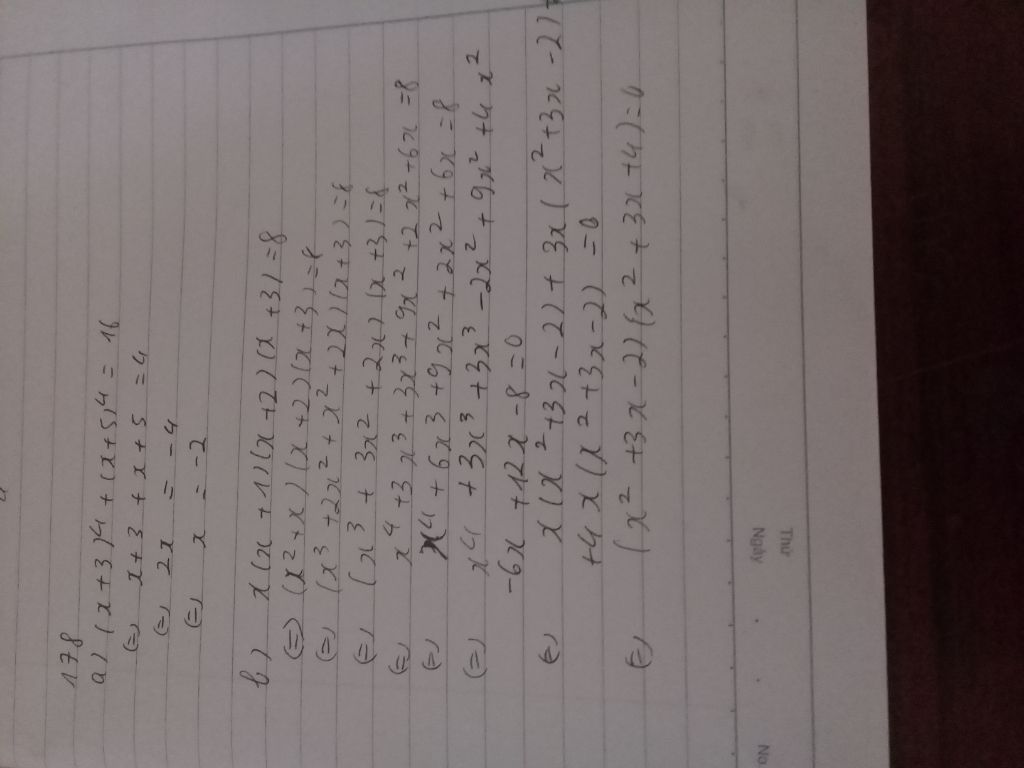 178
a) (x+3)⁴ + (x+5)⁴ = 16
(=) x+3 + x+5 = 4
(=) 2x = -4
(=) x = -2
b) x(x+1)(x+2)(x+3) = 8
(=) (x²+x)(x+2)(x+3) = 8
(=) (x³+2x²+x²+2x)(x+3) = 8
(=) (x³+3x²+2x)(x+3) = 8
(=) x⁴+3x³+3x³+9x²+2x²+6x = 8
(=) x⁴+6x³+9x²+2x²+6x = 8
(=) x⁴+3x³+3x³-2x²+9x²+4x²
-6x+12x-8 = 0
(=) x(x²+3x-2)+3x(x²+3x-2)
+4x(x²+3x-2) = 0
(=) (x²+3x-2)(x²+3x+4) = 0
Thứ
Ngày
No.